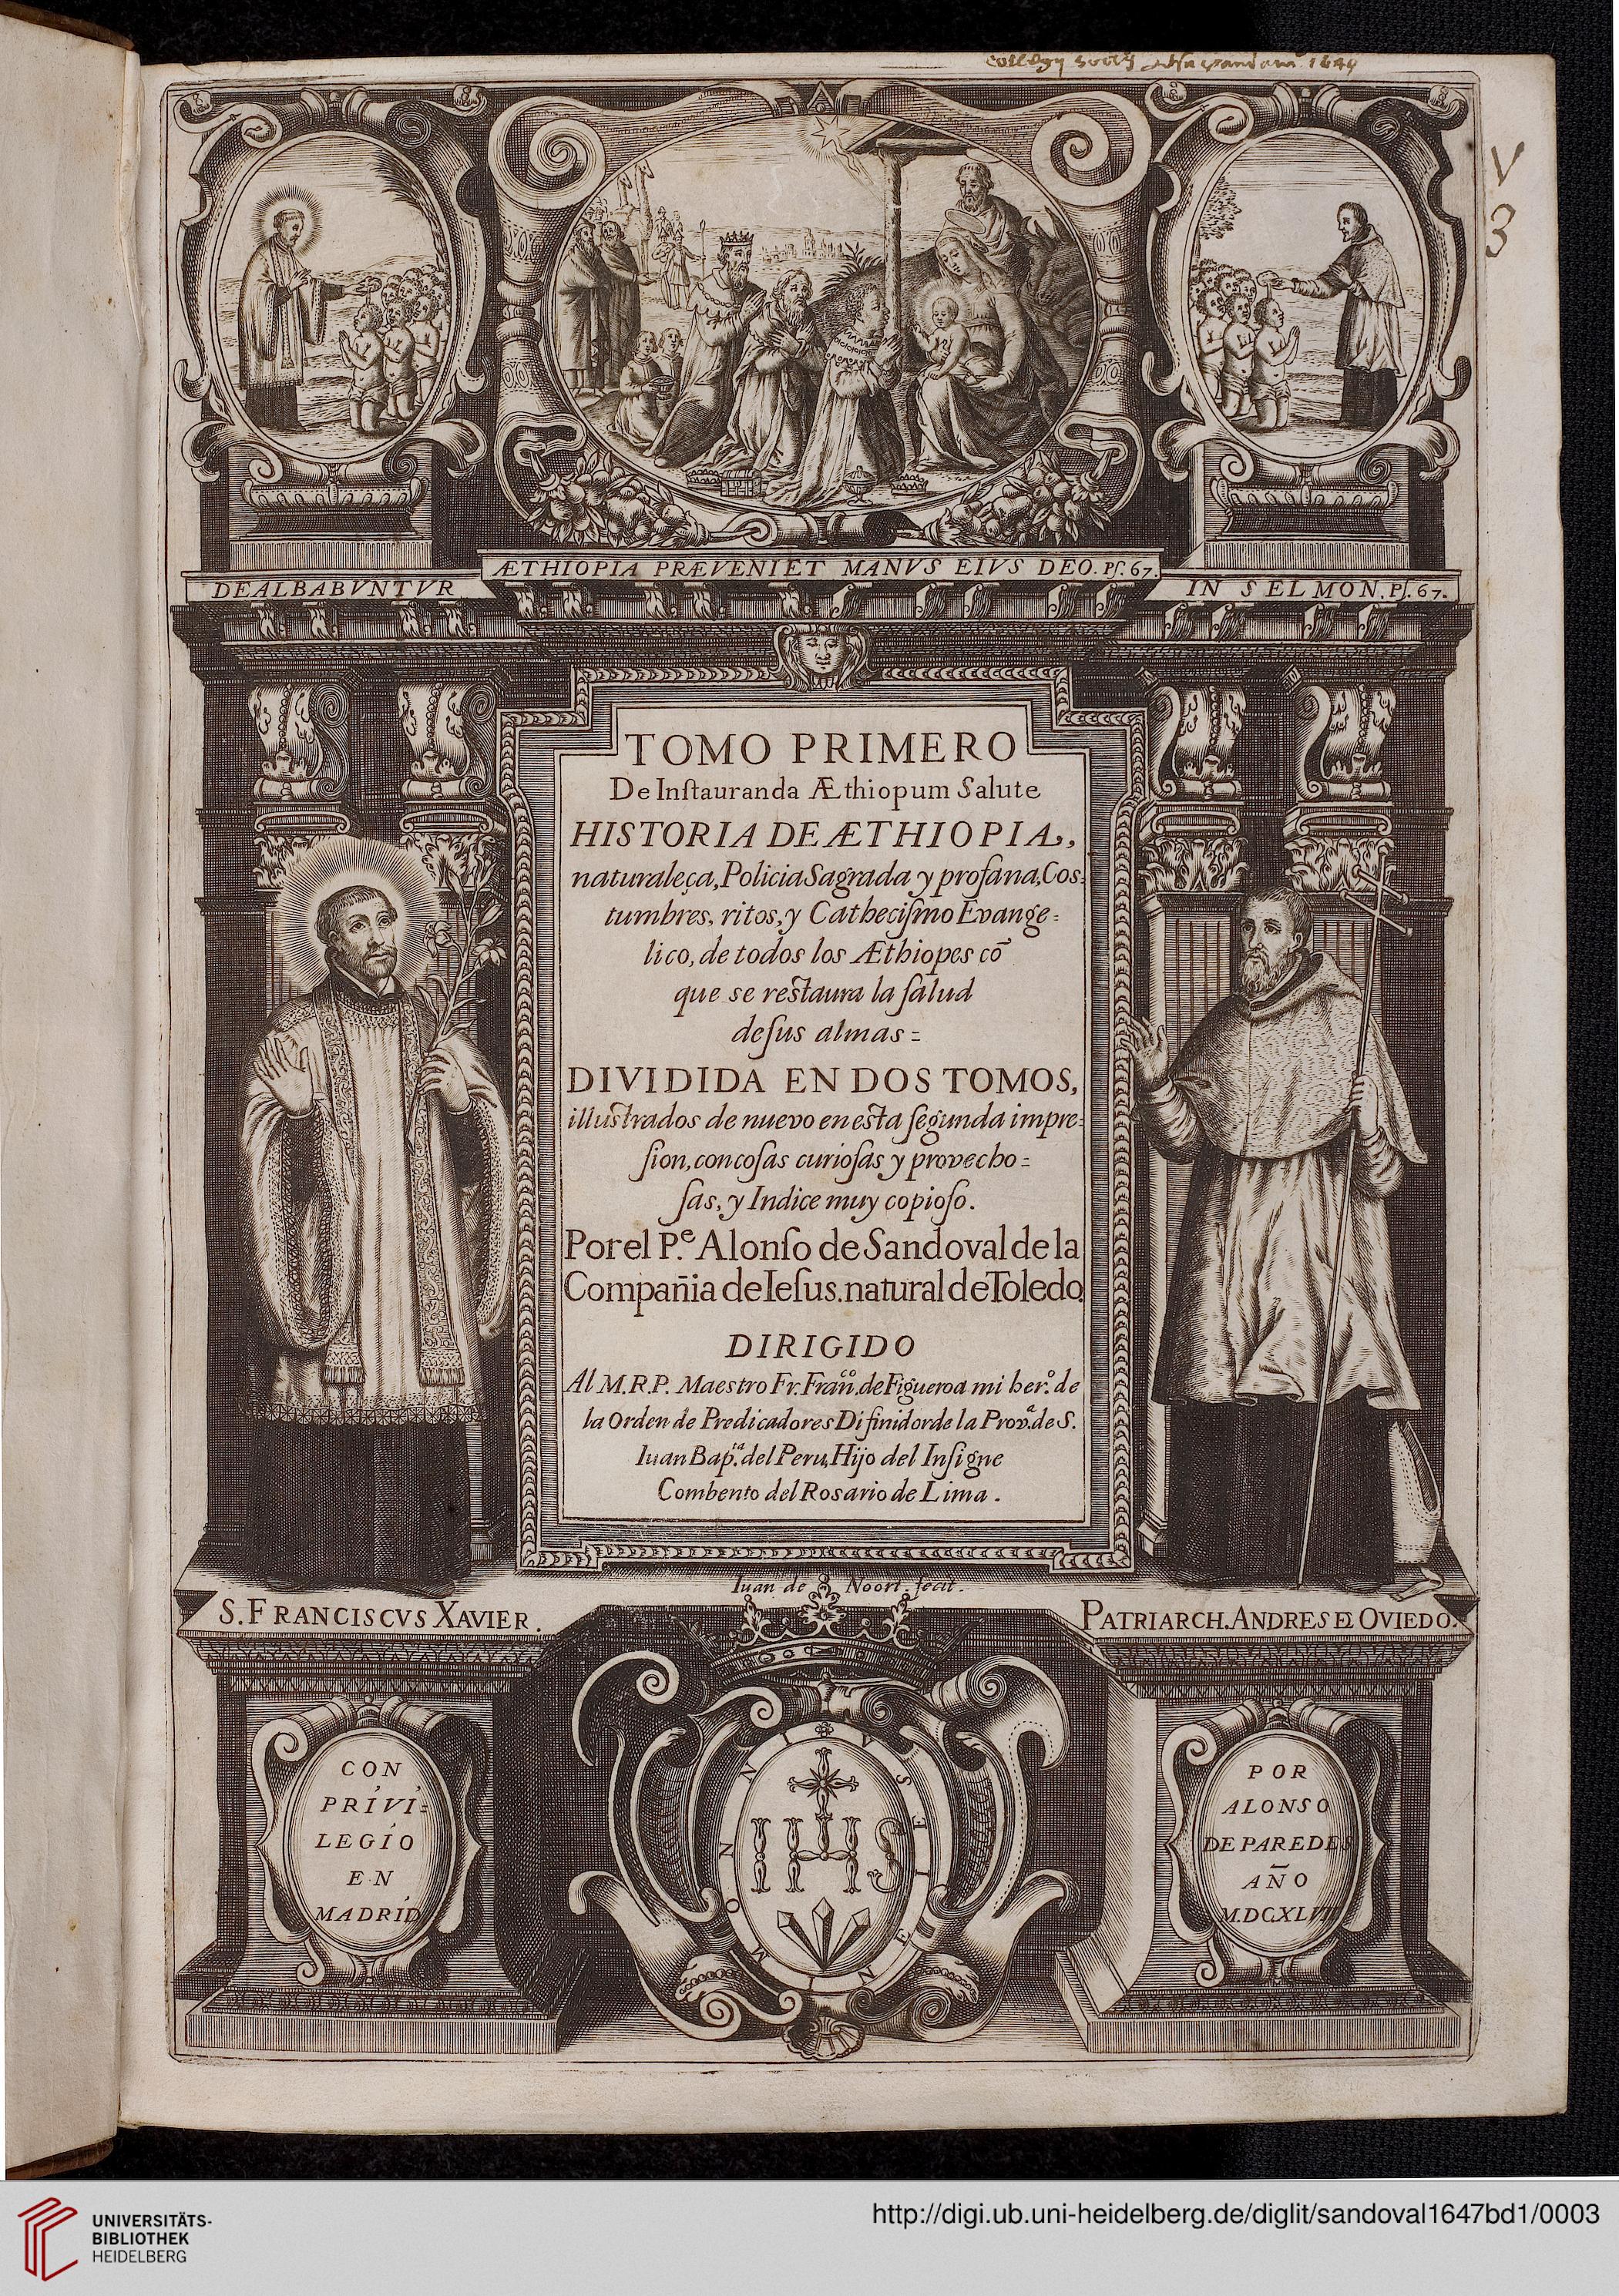 1649
V
3
ÆTHIOPIA PRÆVENIET MANVS EIVS DEO. Pſ. 67.
DEALBABVNTVR
IN SELMON. Pſ. 67.
TOMO PRIMERO
De Inſtauranda Æthiopum Salute
HISTORIA DE ÆTHIOPIA,
naturaleça, Policia Sagrada y profana, Cos=
tumbres, ritos, y Catheciſmo Evange=
lico, de todos los Æthiopes cõ
que se restaura la ſalud
de ſus almas=
DIVIDIDA EN DOS TOMOS,
illustrados de nuevo en esta ſegunda impre=
ſion, con coſas curioſas y provecho=
ſas, y Indice muy copioſo.
Por el P.e Alonſo de Sandoval de la
Compañia de Ieſus. natural de Toledo.
DIRIGIDO
Al M.R.P. Maestro Fr. Franco. de Figueroa mi hero. de
la Orden de Predicadores Difinidor de la Prova. de S.
Iuan Bapta. del Peru, Hijo del Inſigne
Combento del Rosario de Lima.
Iuan de Noort. fecit.
S. FRANCISCVS XAVIER.
PATRIARCH. ANDRES DE OVIEDO.
CON
PRIVI=
LEGIO
EN
MADRID
OMNI
IHS
POR
ALONSO
DE PAREDES
AÑO
M.DCXLVII
UNIVERSITÄTS-
BIBLIOTHEK
HEIDELBERG
http://digi.ub.uni-heidelberg.de/diglit/sandoval1647bd1/0003